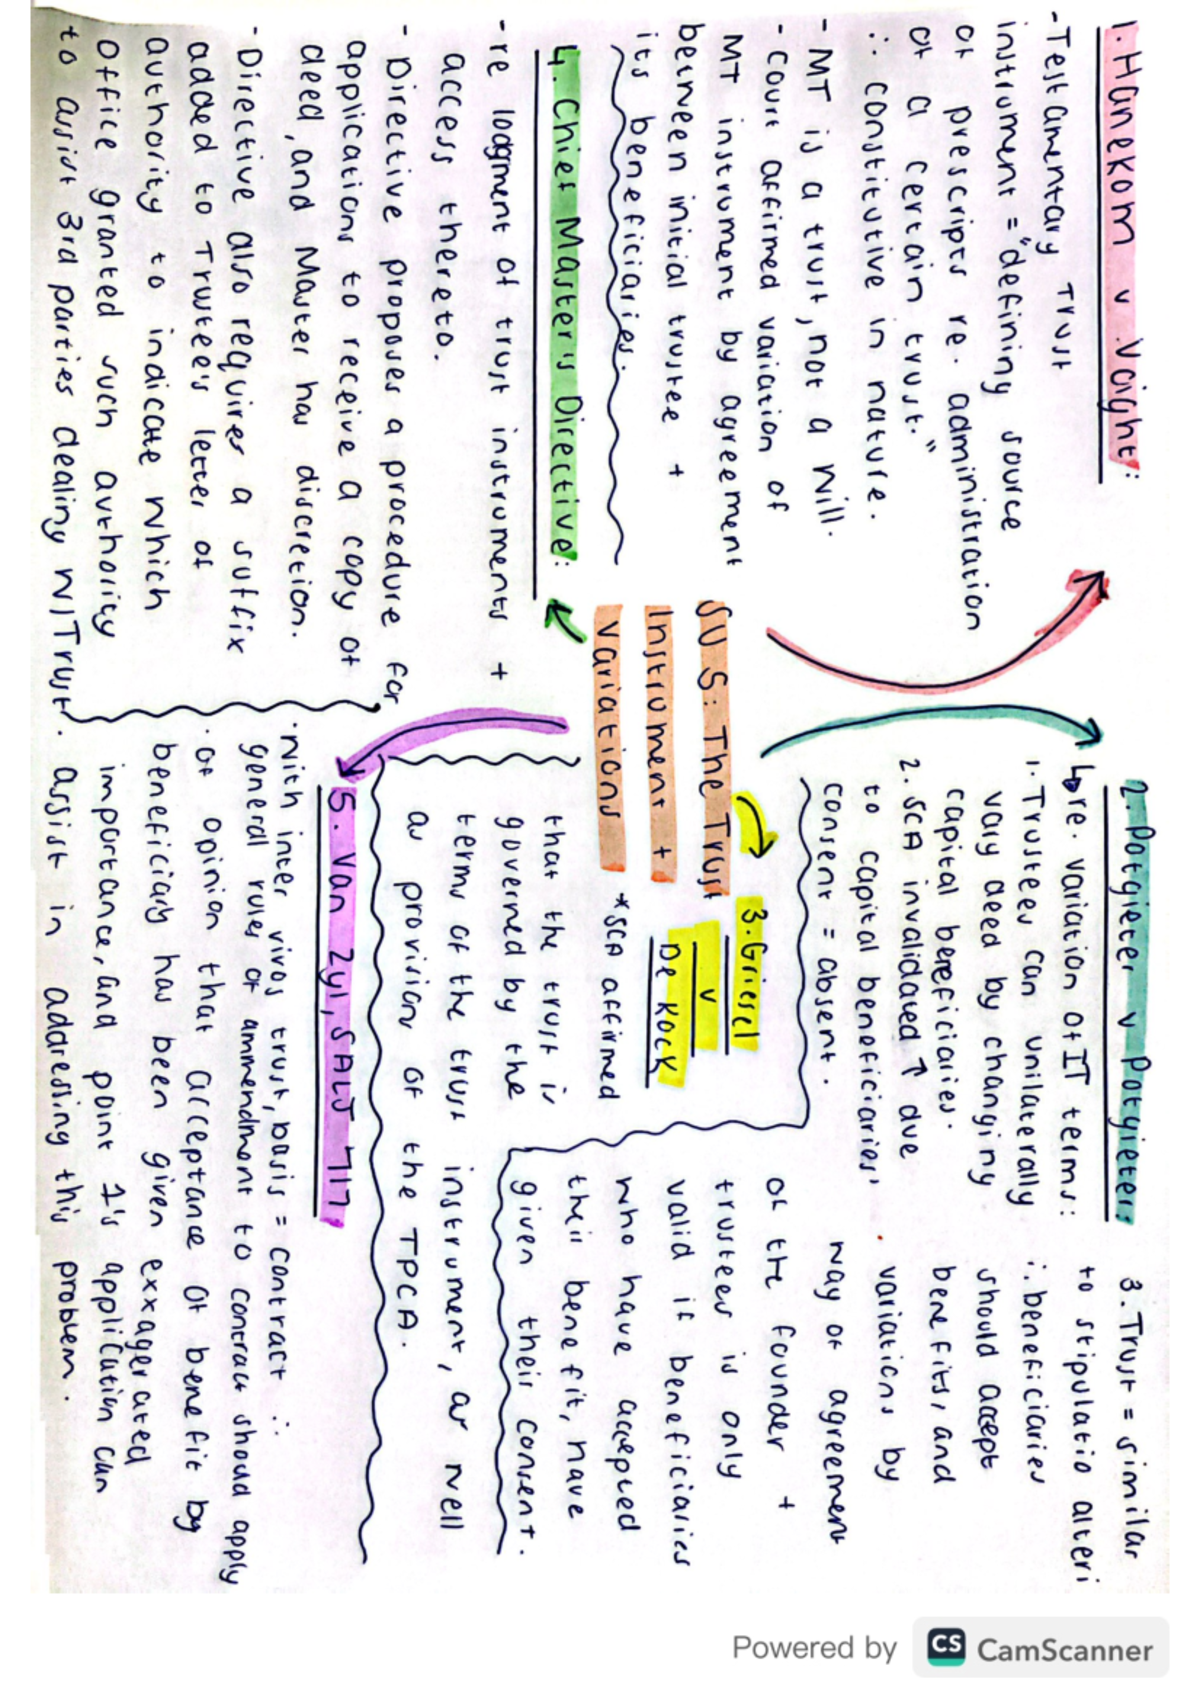 1. Hanekom v Voight:
- Testamentary Trust
instrument = "defining source
of prescripts re. administration
of a certain trust."
∴ constitutive in nature.
- MT is a trust, not a will.
- Court affirmed variation of
MT instrument by agreement
between initial trustee +
its beneficiaries.
2. Potgieter v Potgieter:
↳ re. variation of IT terms:
1. Trustees can unilaterally
vary deed by changing
capital beneficiaries.
2. SCA invalidated ↑ due
to capital beneficiaries'
consent = absent.
3. Trust = similar
to stipulatio alteri
∴ beneficiaries
should accept
benefits, and
• variations by
way of agreement
of the founder +
trustees is only
valid if beneficiaries
who have accepted
their benefit, have
given their consent.
SU 5: The Trust
Instrument +
Variations
3. Griesel
v
De Kock
*SCA affirmed
that the trust is
governed by the
terms of the trust instrument, as well
as provisions of the TPCA.
4. Chief Master's Directive:
- re lodgment of trust instruments +
access thereto.
- Directive proposes a procedure for
applications to receive a copy of
deed, and Master has discretion.
- Directive also requires a suffix
added to Trustee's letter of
authority to indicate which
Office granted such authority
to assist 3rd parties dealing w/Trust.
5. Van Zyl, SALJ 717:
• With inter vivos trust, basis = contract ∴
general rules of ammendment to contract should apply
• Of opinion that acceptance of benefit by
beneficiary has been given exxagerated
importance, and point 1's application can
assist in addressing this problem.
Powered by CS CamScanner